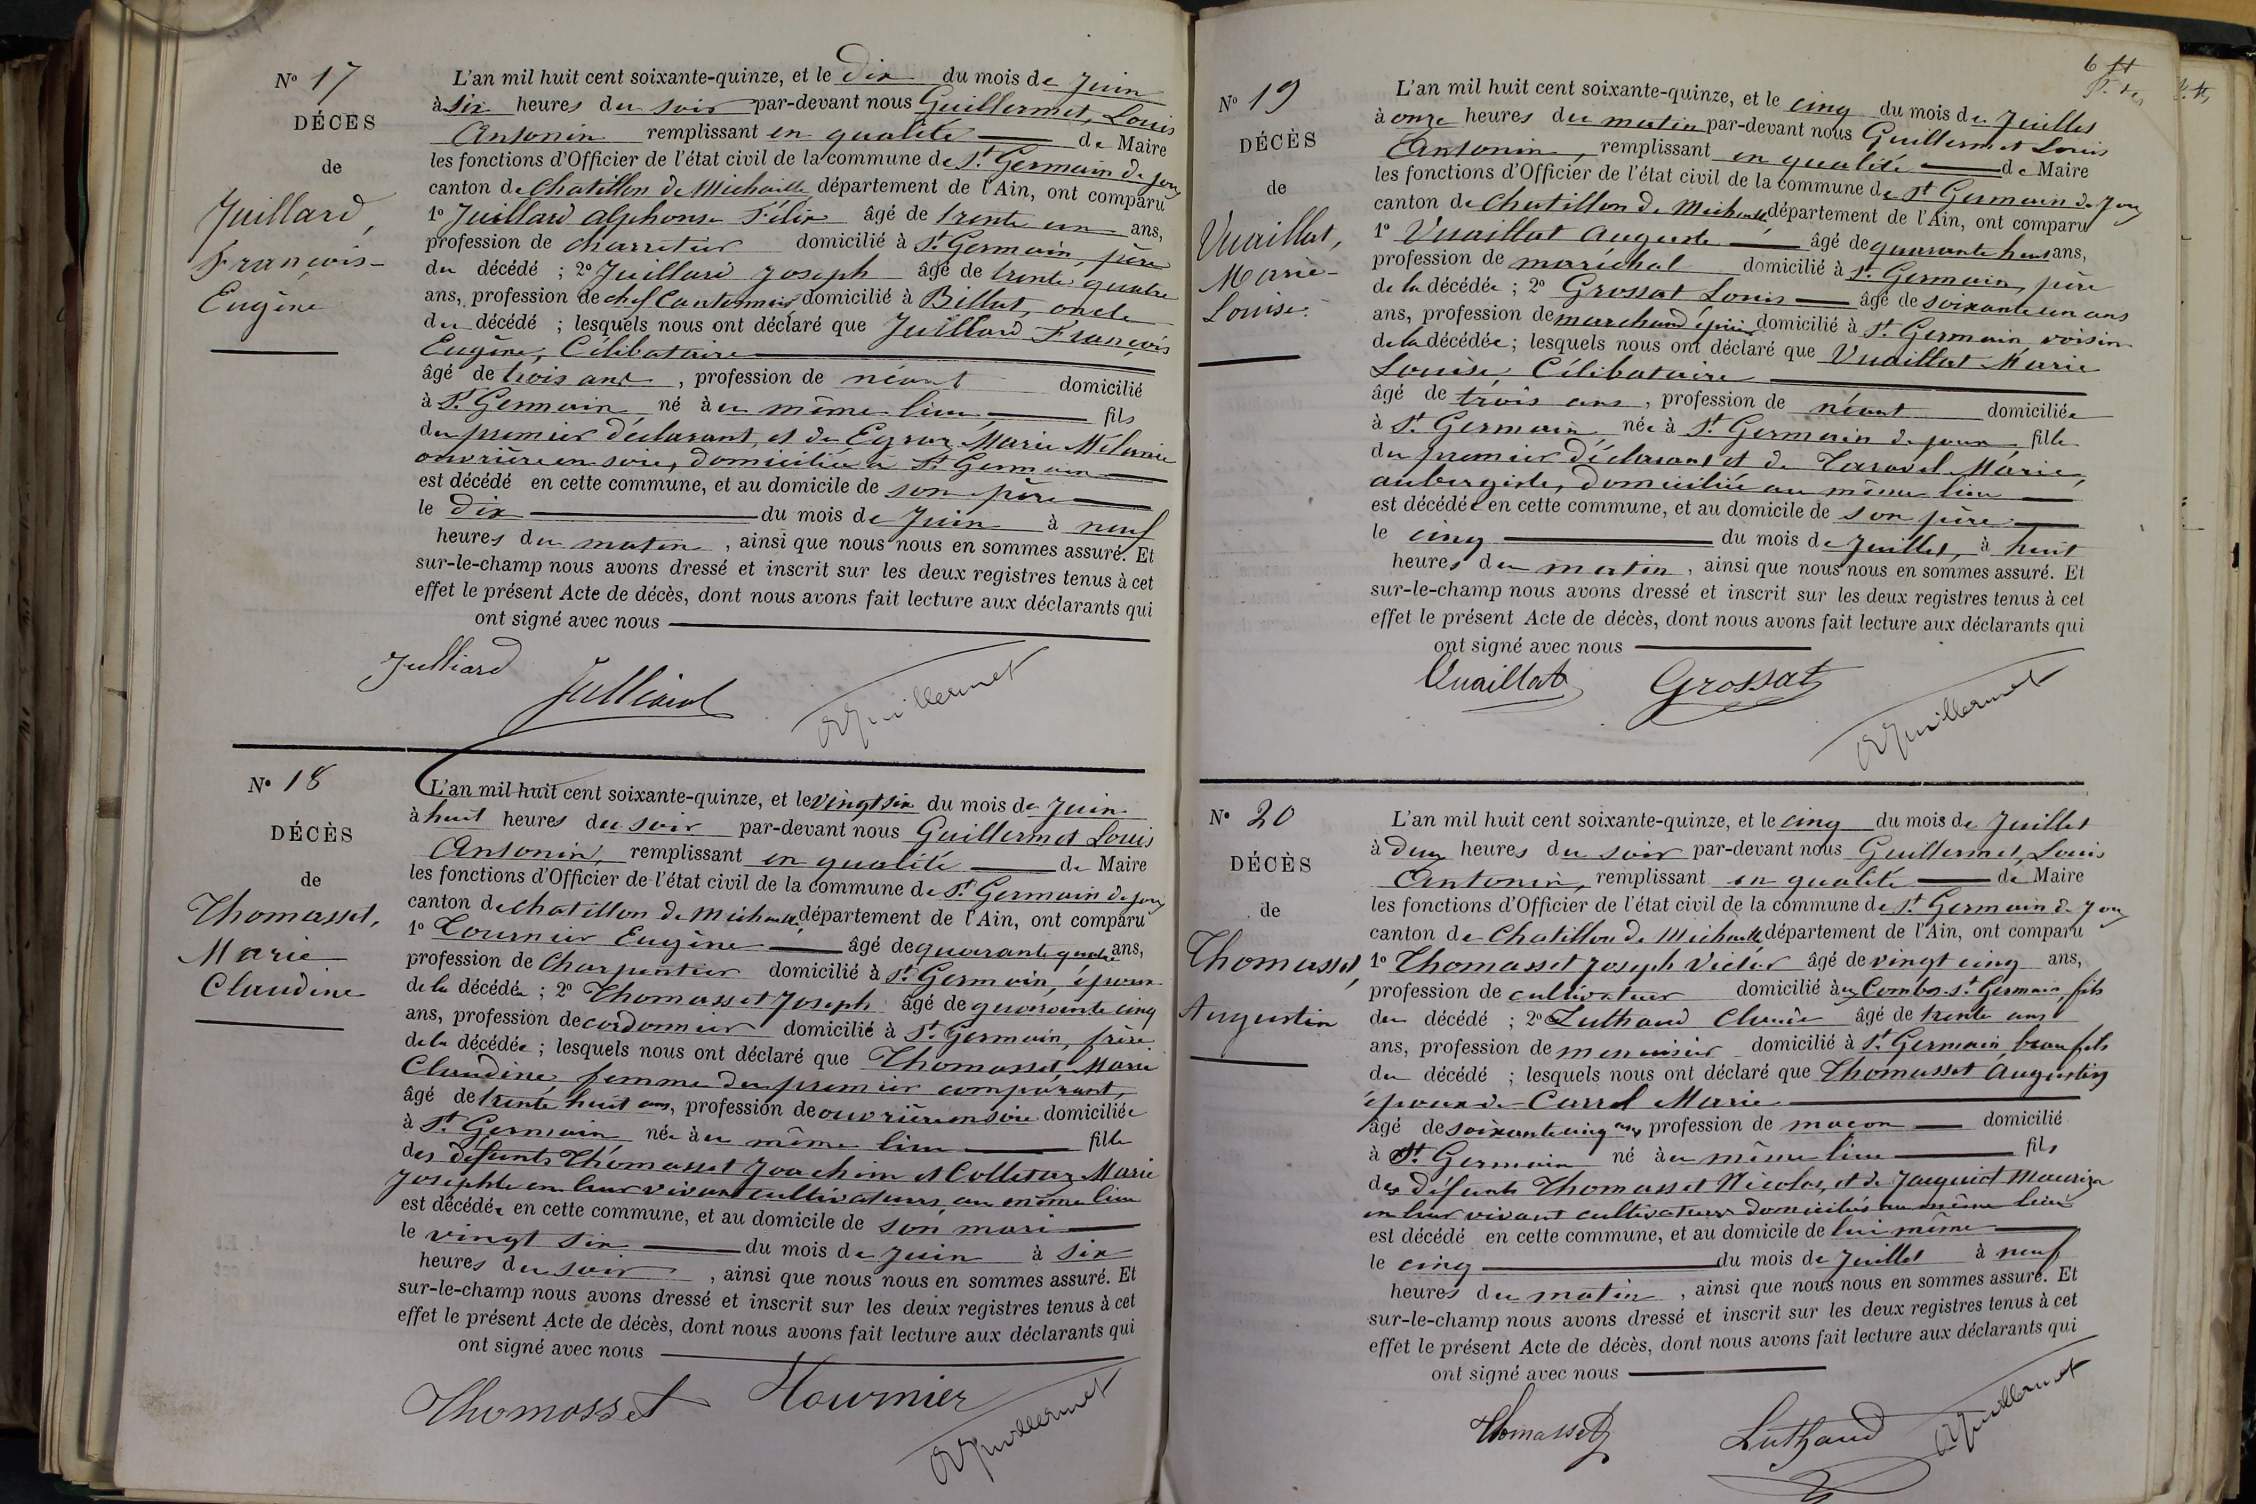 N° 17
DÉCÈS
de
Juillard,
François-
Eugène
L'an mil huit cent soixante-quinze, et le dix du mois de Juin
à six heures du soir par-devant nous Guillermet, Louis
Antonin remplissant en qualité de Maire
les fonctions d'Officier de l'état civil de la commune de St Germain de Joux
canton de Chatillon de Michaille département de l'Ain, ont comparu
1° Juillard Alphonse Félix âgé de trente un ans,
profession de charretier domicilié à St Germain, père
du décédé ; 2° Juillard Joseph âgé de trente quatre
ans, profession de chef Cantonnier domicilié à Billiat, oncle
du décédé ; lesquels nous ont déclaré que Juillard François
Eugène, Célibataire
âgé de trois ans , profession de néant domicilié
à St Germain né à u même lieu, fils
du premier déclarant, et de Egraz Marie Mélanie
ouvrière en soie, domiciliée à St Germain
est décédé en cette commune, et au domicile de son père
le dix du mois de Juin à neuf
heures du matin , ainsi que nous nous en sommes assuré. Et
sur-le-champ nous avons dressé et inscrit sur les deux registres tenus à cet
effet le présent Acte de décès, dont nous avons fait lecture aux déclarants qui
ont signé avec nous
Julliard Julliard Guillermet
N° 18
DÉCÈS
de
Thomasset,
Marie
Claudine
L'an mil huit cent soixante-quinze, et le vingt six du mois de Juin
à huit heures du soir par-devant nous Guillermet Louis
Antonin, remplissant en qualité de Maire
les fonctions d'Officier de l'état civil de la commune de St Germain de Joux
canton de Chatillon de Michaille département de l'Ain, ont comparu
1° Tournier Eugène âgé de quarante quatre ans,
profession de Charpentier domicilié à St Germain, époux
de la décédée ; 2° Thomasset Joseph âgé de quarante cinq
ans, profession de cordonnier domicilié à St Germain, frère
de la décédée ; lesquels nous ont déclaré que Thomasset Marie
Claudine femme du premier comparant,
âgé de trente huit ans, profession de ouvrière en soie domiciliée
à St Germain née à u même lieu fille
des défunts Thomasset Joachim et Colletaz Marie
Josephte en leur vivant cultivateurs au même lieu
est décédée en cette commune, et au domicile de son mari
le vingt six du mois de Juin à six
heures du soir , ainsi que nous nous en sommes assuré. Et
sur-le-champ nous avons dressé et inscrit sur les deux registres tenus à cet
effet le présent Acte de décès, dont nous avons fait lecture aux déclarants qui
ont signé avec nous
Thomasset Tournier Guillermet
N° 19
DÉCÈS
de
Vuaillat,
Marie-
Louise.
L'an mil huit cent soixante-quinze, et le cinq du mois de Juillet
à onze heures du matin par-devant nous Guillermet Louis
Antonin, remplissant en qualité de Maire
les fonctions d'Officier de l'état civil de la commune de St Germain de Joux
canton de Chatillon de Michaille département de l'Ain, ont comparu
1° Vuaillat Auguste âgé de quarante huit ans,
profession de maréchal domicilié à St Germain, père
de la décédée ; 2° Grossat Louis âgé de soixante un ans
ans, profession de marchand épicier domicilié à St Germain voisin
de la décédée ; lesquels nous ont déclaré que Vuaillat Marie
Louise, Célibataire
âgé de trois ans , profession de néant domiciliée
à St Germain née à St Germain de Joux, fille
du premier déclarant et de Taravel Marie,
aubergiste, domiciliée au même lieu
est décédée en cette commune, et au domicile de son père
le cinq du mois de Juillet, à huit
heures du matin , ainsi que nous nous en sommes assuré. Et
sur-le-champ nous avons dressé et inscrit sur les deux registres tenus à cet
effet le présent Acte de décès, dont nous avons fait lecture aux déclarants qui
ont signé avec nous
Vuaillat Grossat Guillermet
N° 20
DÉCÈS
de
Thomasset,
Augustin
L'an mil huit cent soixante-quinze, et le cinq du mois de Juillet
à deux heures du soir par-devant nous Guillermet, Louis
Antonin, remplissant en qualité de Maire
les fonctions d'Officier de l'état civil de la commune de St Germain de Joux
canton de Chatillon de Michaille département de l'Ain, ont comparu
1° Thomasset Joseph Victor âgé de vingt cinq ans,
profession de cultivateur domicilié à Combes St Germain, fils
du décédé ; 2° Luthaud Claude âgé de trente ans
ans, profession de menuisier domicilié à St Germain beau fils
du décédé ; lesquels nous ont déclaré que Thomasset Augustin
époux de Carrel Marie
âgé de soixante cinq ans profession de maçon domicilié
à St Germain né à u même lieu fils
des défunts Thomasset Nicolas, et de Jacquiot Mauriza
en leur vivant cultivateurs domiciliés au même lieu
est décédé en cette commune, et au domicile de lui même
le cinq du mois de Juillet à neuf
heures du matin , ainsi que nous nous en sommes assuré. Et
sur-le-champ nous avons dressé et inscrit sur les deux registres tenus à cet
effet le présent Acte de décès, dont nous avons fait lecture aux déclarants qui
ont signé avec nous
Thomasset Luthaud Guillermet